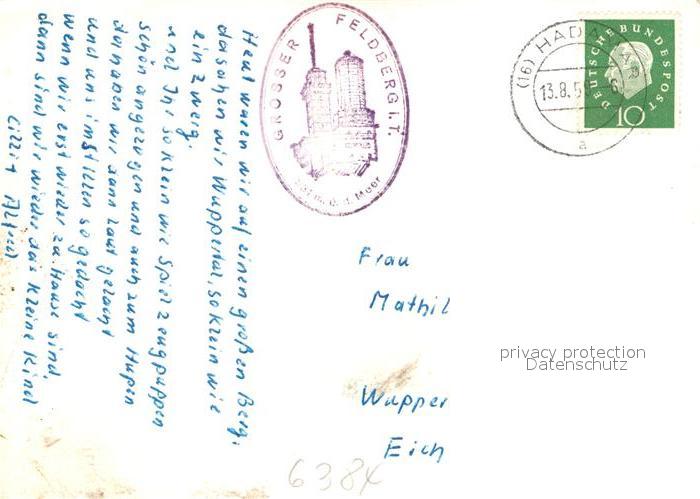 Heut waren wir auf einen großen Berg,
da sahen wir Wuppertal, so klein wie
ein Zwerg.
und Ihr so klein wie Spielzeugpuppen
schön angezogen und auch zum Hupen
da haben wir dann laut gelacht
und uns im stillen so gedacht
wenn wir erst wieder zu Hause sind
dann sind wir wieder das kleine Kind
Alfred
GROSSER FELDBERG i. T.
ü. d. Meer
(16) HADA
13.8.5
a
DEUTSCHE BUNDESPOST
10
Frau
Mathil
Wupper
Eich
privacy protection
Datenschutz
6384